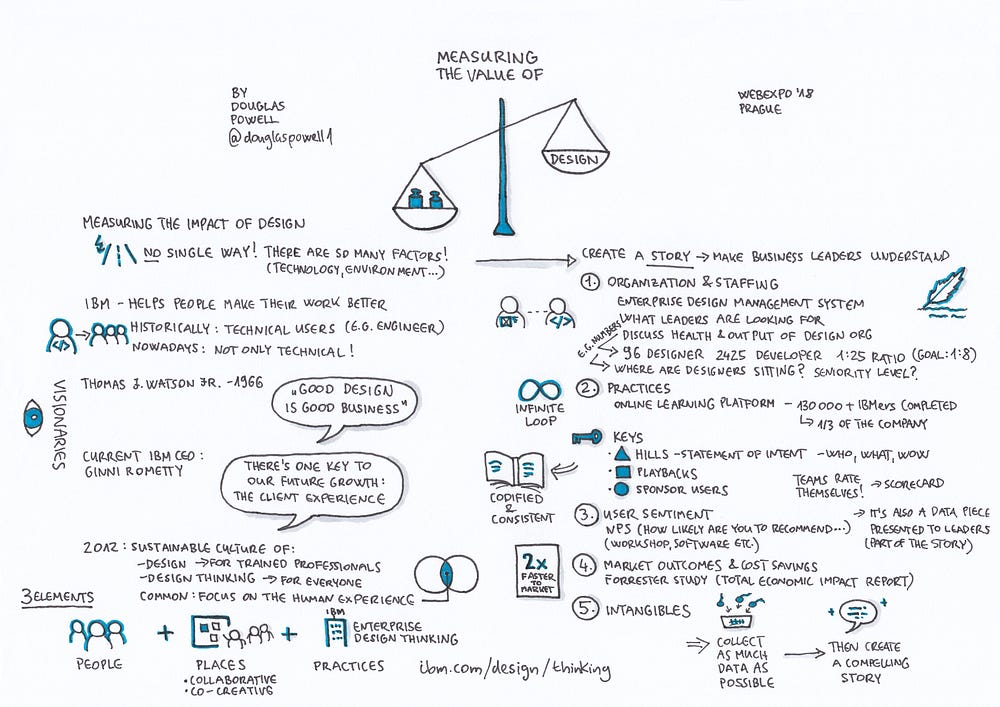 MEASURING
THE VALUE OF
BY
DOUGLAS
POWELL
@douglaspowell1
WEBEXPO '18
PRAGUE
DESIGN
MEASURING THE IMPACT OF DESIGN
NO SINGLE WAY! THERE ARE SO MANY FACTORS!
(TECHNOLOGY, ENVIRONMENT...)
IBM - HELPS PEOPLE MAKE THEIR WORK BETTER
</>
HISTORICALLY: TECHNICAL USERS (E.G. ENGINEER)
NOWADAYS: NOT ONLY TECHNICAL!
VISIONARIES
THOMAS J. WATSON JR. - 1966
„GOOD DESIGN
IS GOOD BUSINESS"
CURRENT IBM CEO:
GINNI ROMETTY
THERE'S ONE KEY TO
OUR FUTURE GROWTH:
THE CLIENT EXPERIENCE
2012: SUSTAINABLE CULTURE OF:
- DESIGN → FOR TRAINED PROFESSIONALS
- DESIGN THINKING → FOR EVERYONE
COMMON: FOCUS ON THE HUMAN EXPERIENCE
3 ELEMENTS
PEOPLE
+
PLACES
• COLLABORATIVE
• CO-CREATIVE
+
IBM
ENTERPRISE
DESIGN THINKING
PRACTICES
ibm.com/design/thinking
CREATE A STORY → MAKE BUSINESS LEADERS UNDERSTAND
1. ORGANIZATION & STAFFING
ENTERPRISE DESIGN MANAGEMENT SYSTEM
WHAT LEADERS ARE LOOKING FOR
DISCUSS HEALTH & OUTPUT OF DESIGN ORG
</>
E.G. NUMBERS
96 DESIGNER 2425 DEVELOPER 1:25 RATIO (GOAL: 1:8)
WHERE ARE DESIGNERS SITTING? SENIORITY LEVEL?
INFINITE
LOOP
2. PRACTICES
ONLINE LEARNING PLATFORM - 130 000 + IBMers COMPLETED
1/3 OF THE COMPANY
KEYS
• HILLS - STATEMENT OF INTENT - WHO, WHAT, WOW
• PLAYBACKS
• SPONSOR USERS
TEAMS RATE
THEMSELVES! → SCORECARD
CODIFIED
&
CONSISTENT
3. USER SENTIMENT
NPS (HOW LIKELY ARE YOU TO RECOMMEND...)
(WORKSHOP, SOFTWARE ETC.)
→ IT'S ALSO A DATA PIECE
PRESENTED TO LEADERS
(PART OF THE STORY)
2x
FASTER
TO
MARKET
4. MARKET OUTCOMES & COST SAVINGS
FORRESTER STUDY (TOTAL ECONOMIC IMPACT REPORT)
5. INTANGIBLES
COLLECT
AS MUCH
DATA AS
POSSIBLE
THEN CREATE
A COMPELLING
STORY